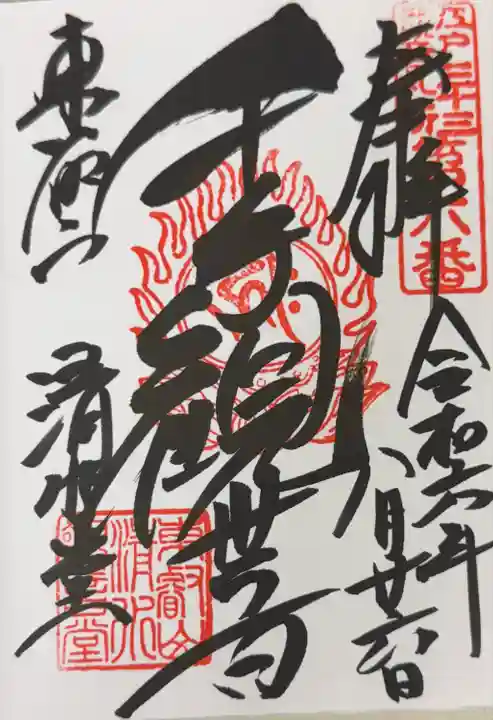 奉拝
令和六年
八月廿六日
千手観世音
東叡山
清水堂
第六番
東叡山
清水
観音堂